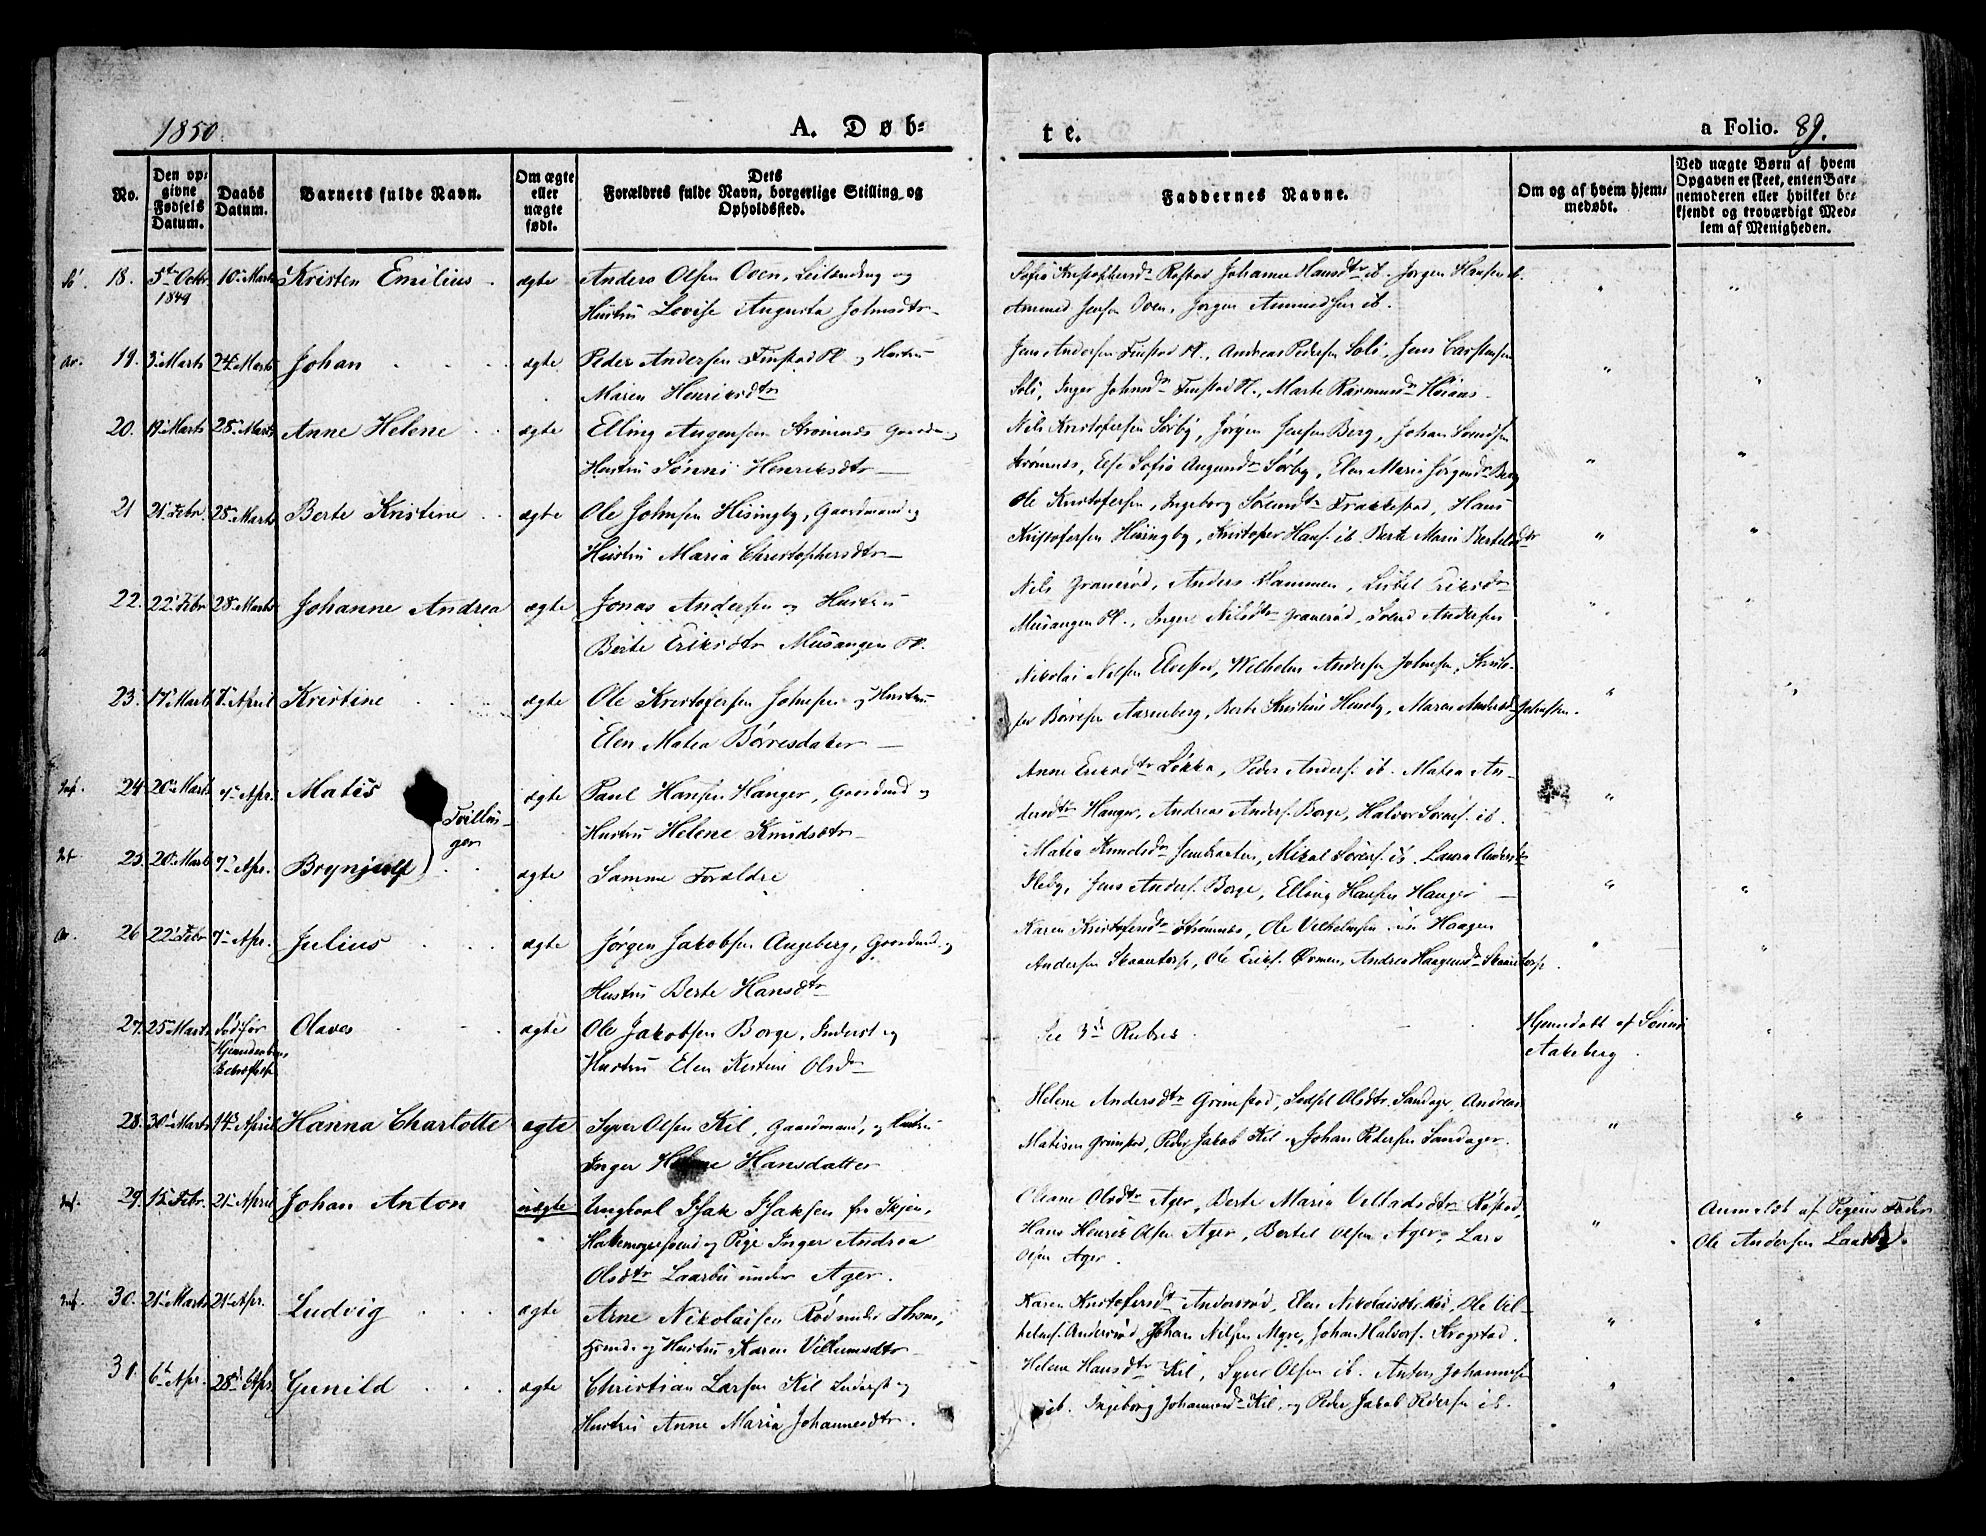 1850.
A. Døb-
te.
a Folio. 89.
No.
Den op-
givne
Fødsels
Datum.
Daabs
Datum.
Barnets fulde Navn.
Om ægte
eller
uægte
født.
Dets
Forældres fulde Navn, borgerlige Stilling og
Opholdssted.
Faddernes Navne.
Om og af hvem hjem-
medøbt.
Ved uægte Børn af hvem
Opgaven er skeet, enten Bar-
nemoderen eller hvilket be-
kjendt og troværdigt Med-
lem af Menigheden.
18. 5te Octbr 10de Marts Kristen Emilius ægte Anders Olsen Oven, Leilending og
1849
Hustru Lovise Augusta Johnsdtr
Sofie Kristophersdr Rostad Johanne Hansdtr ib. Jørgen Hansen ib.
Ammund Jensen Oven, Jørgen Ammundsen ib.
19. 3 Marts 24 Marts Johan ægte Peder Andersen Finstad Pl. og Hustru
Maren Henriksdtr
Jens Andersen Finstad Pl., Andreas Pedersen Soli, Jens Carstensen
Soli, Inger Johnsdr Finstad Pl., Marte Rasmusdr Høiaas.
20. 19 Marts 28 Marts Anne Helene ægte Elling Augensen Strømnes Gaardm. og
Hustru Sønni Henriksdtr
Nils Kristofersen Sørby, Jørgen Jensen Berg, Johan Svendsen
Strømnes, Else Sofie Augunds Sørby, Elen Marie Jørgensdr Berg
21 21 Febr. 28 Marts Berte Kristine ægte Ole Johnsen Hisingby, Gaardmand og
Hustru Maria Christophersdtr
Ole Kristofersen, Ingeborg Sørensdtr Frakkestad, Hans
Kristofersen Hisingby, Kristopher Hans. ib. Berte Marie Bertelsdtr
22. 22 Febr 28 Marts Johanne Andrea ægte Jonas Andersen og Hustru
Berte Eriksdtr Musangen Pl.
Nils Granerød, Anders Hammen, Lisbet Eriksdr
Musangen Pl., Inger Nilsdtr Granerød, Svend Andersen
23. 17 Marts 7 April Kristine ægte Ole Kristofersen Johnsen og Hustru
Elen Matea Børresdatter
Nikolai Nilsen Elvestad, Wilhelm Andersen Johnsen, Kristo-
fer Børresen Aasenberg, Berte Kristine Heneby, Maren Andersd Johnsen.
24. 20 Marts 7 Apr. Matis ægte Paul Hansen Hanger, Gaardmd og
Hustru Helene Knudsdtr
Tvillin-
ger
Anne Eriksdtr Løkka, Peder Anders. ib. Matea An-
dersdtr Hanger, Andreas Anders. Borge, Halvor Sørens. ib.
25. 20 Marts 7 Apr. Brynjulf ægte Samme Forældre
Matea Knudsdr Jernbraaten, Mikal Sørens. ib. Laura Andersdr
Heby, Jens Anders. Borge, Elling Hansen Hanger
26 22 Febr 7 Apr. Julius ægte Jørgen Jakobsen Augeberg, Gaardmd. og
Hustru Berte Hansdtr
Karen Kristofersdr Strømnes, Ole Vilhelmsen, Haagen
Andersen Skaantorp, Ole Eriks. Ørmen, Andrea Haagensdr Skaantorp
27. 25 Marts Olaves ægte Ole Jakobsen Borge, Inderst og
Hustru Elen Kristine Olsdr
See 3die Rubrik
Hjemdøbt af Sønni
Aakeberg.
28. 30 Marts 14de April Hanna Charlotte ægte Syver Olsen Kil, Gaardmand, og Hustru
Inger Helene Hansdatter
Helene Andersdtr Grimstad, Olsdtr. Sandager, Andreas
Matisen Grimstad, Peder Jakob Kil og Johan Pedersen Sandager.
29. 15 Febr. 21 April Johan Anton uægte Ungkarl Isak Isaksen fra Skjen,
og Pige Inger Andrea
Olsdtr Laarbu under Ager.
Oleane Olsdtr Ager, Berte Maria Velstadsdtr Røstad,
Hans Henrik Olsen Ager, Bertel Olsen Ager, Lars
Olsen Ager.
Anmeldt af Pigens Fader
Ole Andersen Laarbu.
30. 21 Marts 21 Apr. Ludvig ægte Arne Nikolaisen Rød under Thom,
og Hustru Karen Villumsdtr
Karen Kristofersdt Andersrød, Elen Nikolaisdtr. Rød, Ole Vil-
helms. Andersrød Johan Nilsen Myre, Johan Halvors. Krogstad.
31. 6te Apr. 28de Apr. Gunild ægte Christian Larsen Kil Inderst og
Hustru Anne Maria Johannesdtr.
Helene Hansdtr Kil, Syver Olsen ib. Anton Johannesen
ib. Ingeborg Johannesdr Kil, og Peder Jakob Pedersen ib.